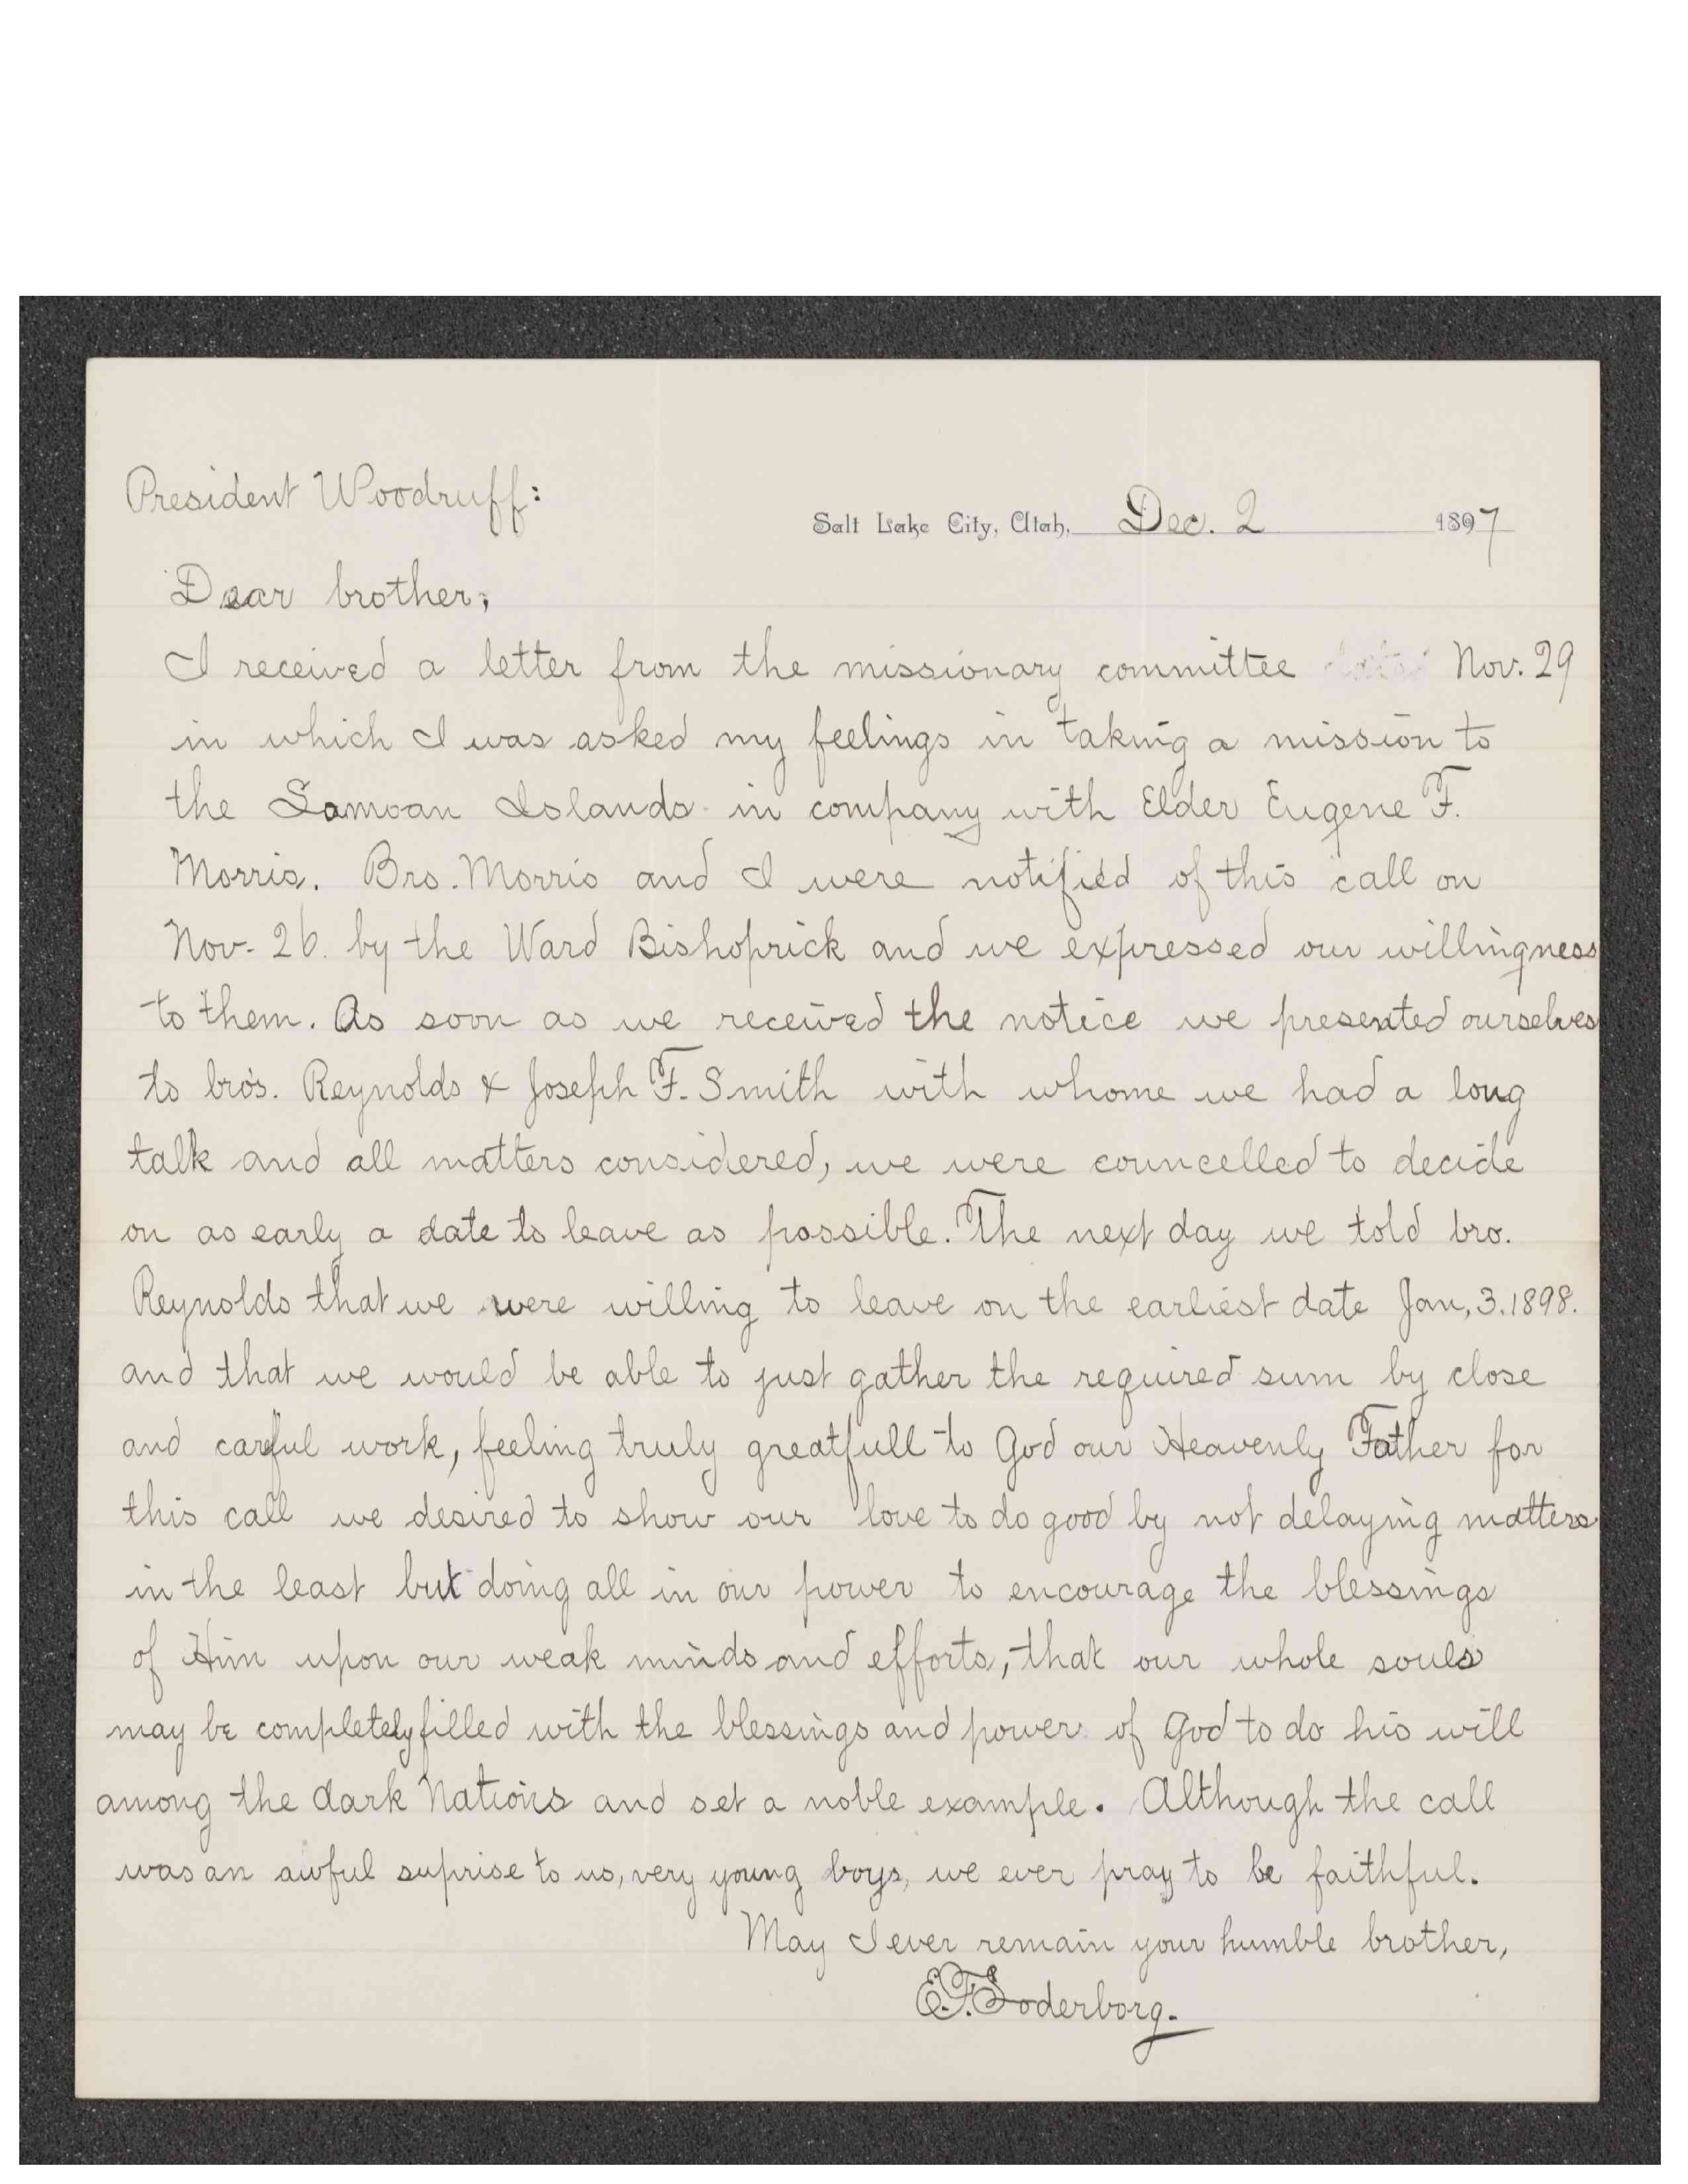 President Woodruff:
Salt Lake City, Utah, Dec. 2 1897
Dear brother;
I received a letter from the missionary committee Nov. 29
in which I was asked my feelings in taking a mission to
the Samoan Islands in company with Elder Eugene F.
Morris. Bro. Morris and I were notified of this call on
Nov. 26. by the Ward Bishoprick and we expressed our willingness
to them. As soon as we received the notice we presented ourselves
to bros. Reynolds & Joseph F. Smith with whome we had a long
talk and all matters considered, we were councelled to decide
on as early a date to leave as possible. The next day we told bro.
Reynolds that we were willing to leave on the earliest date Jan, 3. 1898.
and that we would be able to just gather the required sum by close
and careful work, feeling truly greatfull to God our Heavenly Father for
this call we desired to show our love to do good by not delaying matters
in the least but doing all in our power to encourage the blessings
of Him upon our weak minds and efforts, that our whole souls
may be completely filled with the blessings and power of God to do his will
among the dark Nations and set a noble example. Although the call
was an awful suprise to us, very young boys, we ever pray to be faithful.
May I ever remain your humble brother,
E.F. Soderborg.